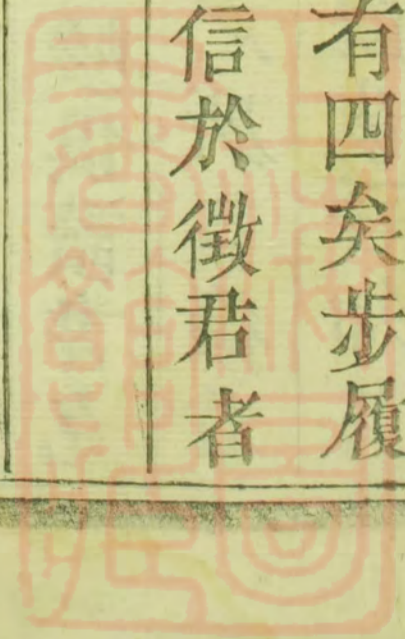 有四矣步履
信於徵君者